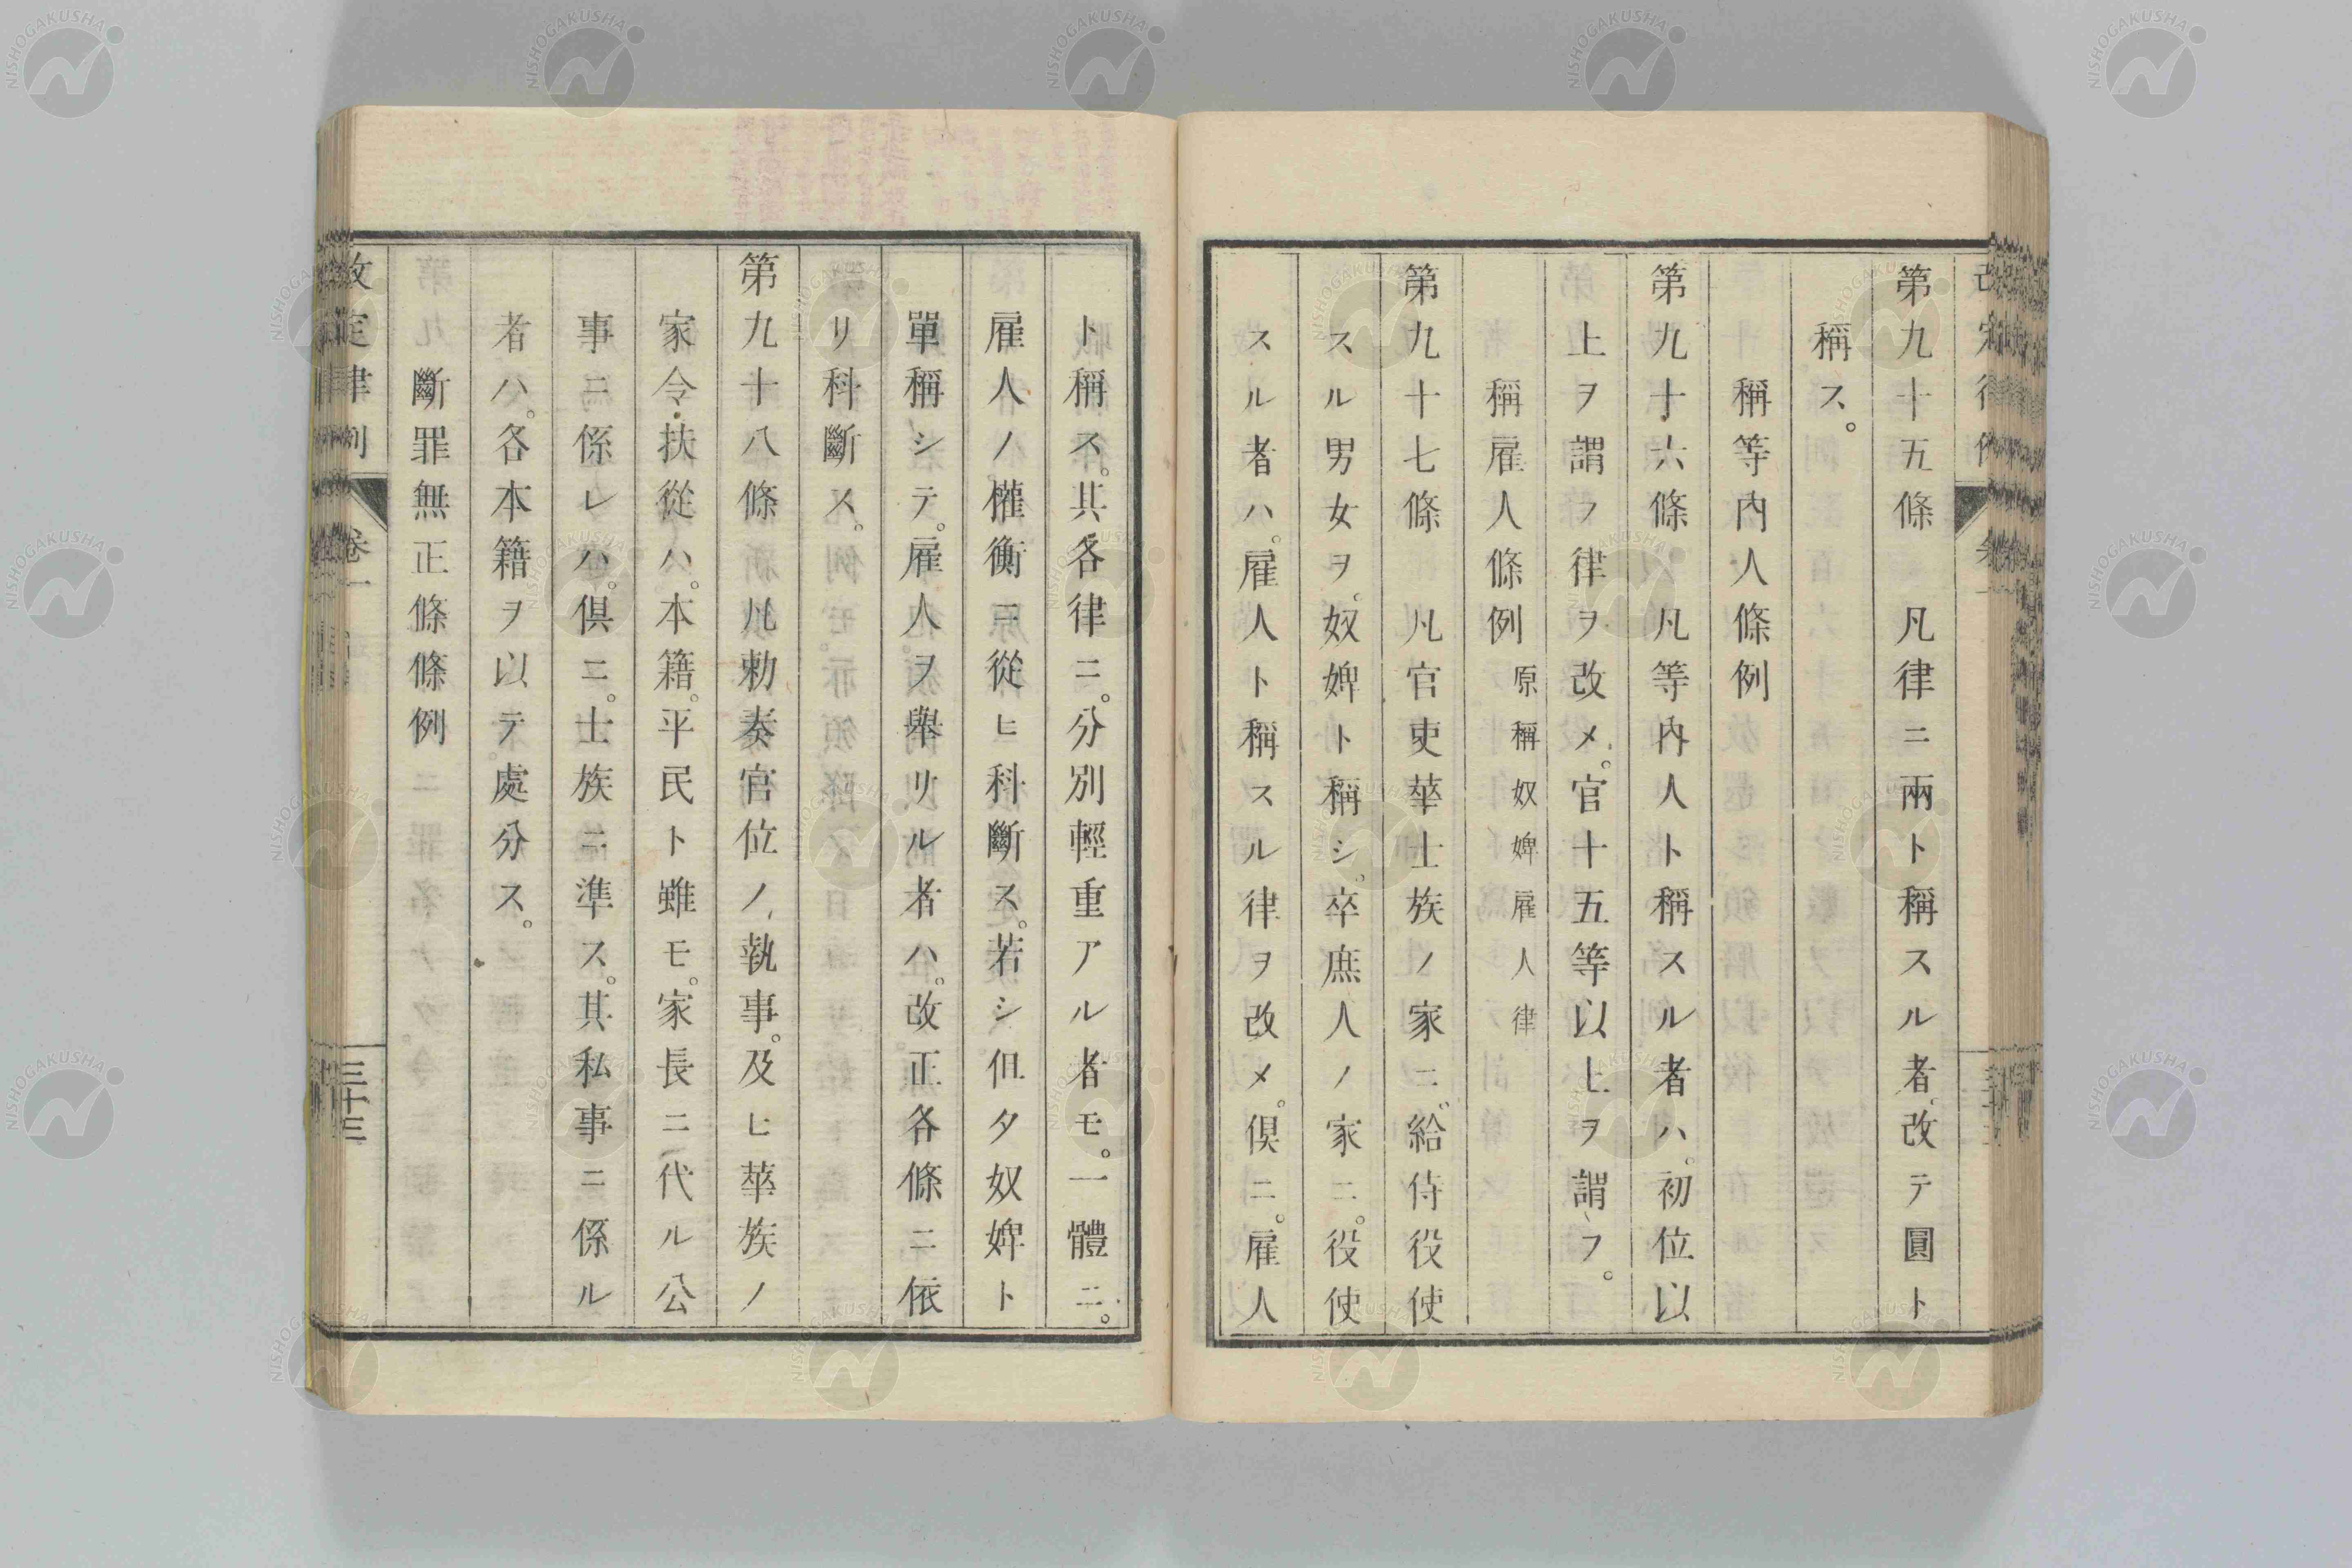 第九十五條　凡律ニ兩ト稱スル者。改テ圓ト
稱ス。
稱等內人條例
第九十六條　凡等內人ト稱スル者ハ。初位以
上ヲ謂フ律ヲ改メ。官十五等以上ヲ謂フ。
稱雇人條例　原稱奴婢雇人律
第九十七條　凡官吏華士族ノ家ニ。給侍役使
スル男女ヲ。奴婢ト稱シ。卒庶人ノ家ニ。役使
スル者ハ。雇人ト稱スル律ヲ改メ。俱ニ。雇人
ト稱ス。其各律ニ。分別輕重アル者モ。一體ニ。
雇人ノ權衡ニ從ヒ科斷ス。若シ但タ奴婢ト
單稱シテ。雇人ヲ舉リル者ハ。改正各條ニ依
リ科斷ス。
第九十八條　凡勅奏官位ノ執事。及ヒ華族ノ
家令扶從ハ。本籍。平民ト雖モ。家長ニ代ル公
事ニ係レハ。俱ニ。士族ニ準ス。其私事ニ係ル
者ハ。各本籍ヲ以テ處分ス。
斷罪無正條條例
改定律例　卷一　三十三
NISHOGAKUSHA